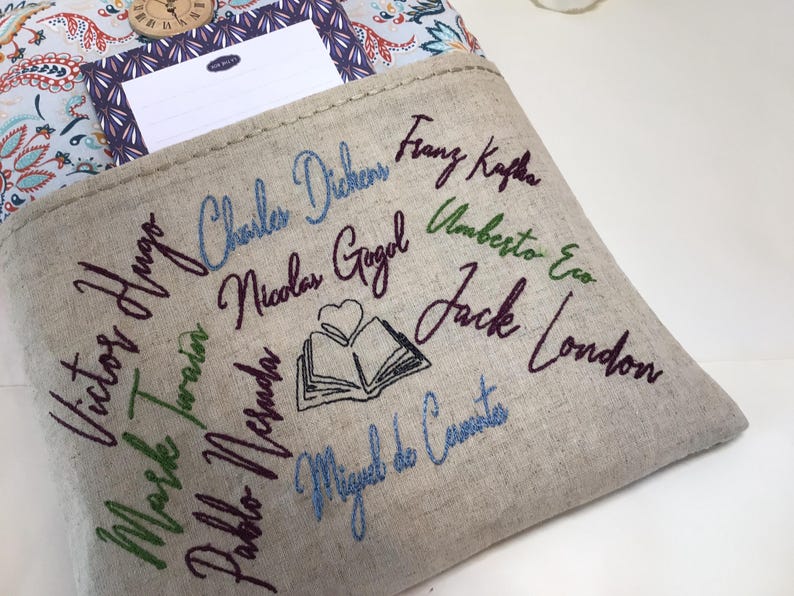 LA THE BOX
Charles Dickens
Franz Kafka
Victor Hugo
Nicolas Gogol
Umberto Eco
Jack London
Mark Twain
Pablo Neruda
Miguel de Cervantes